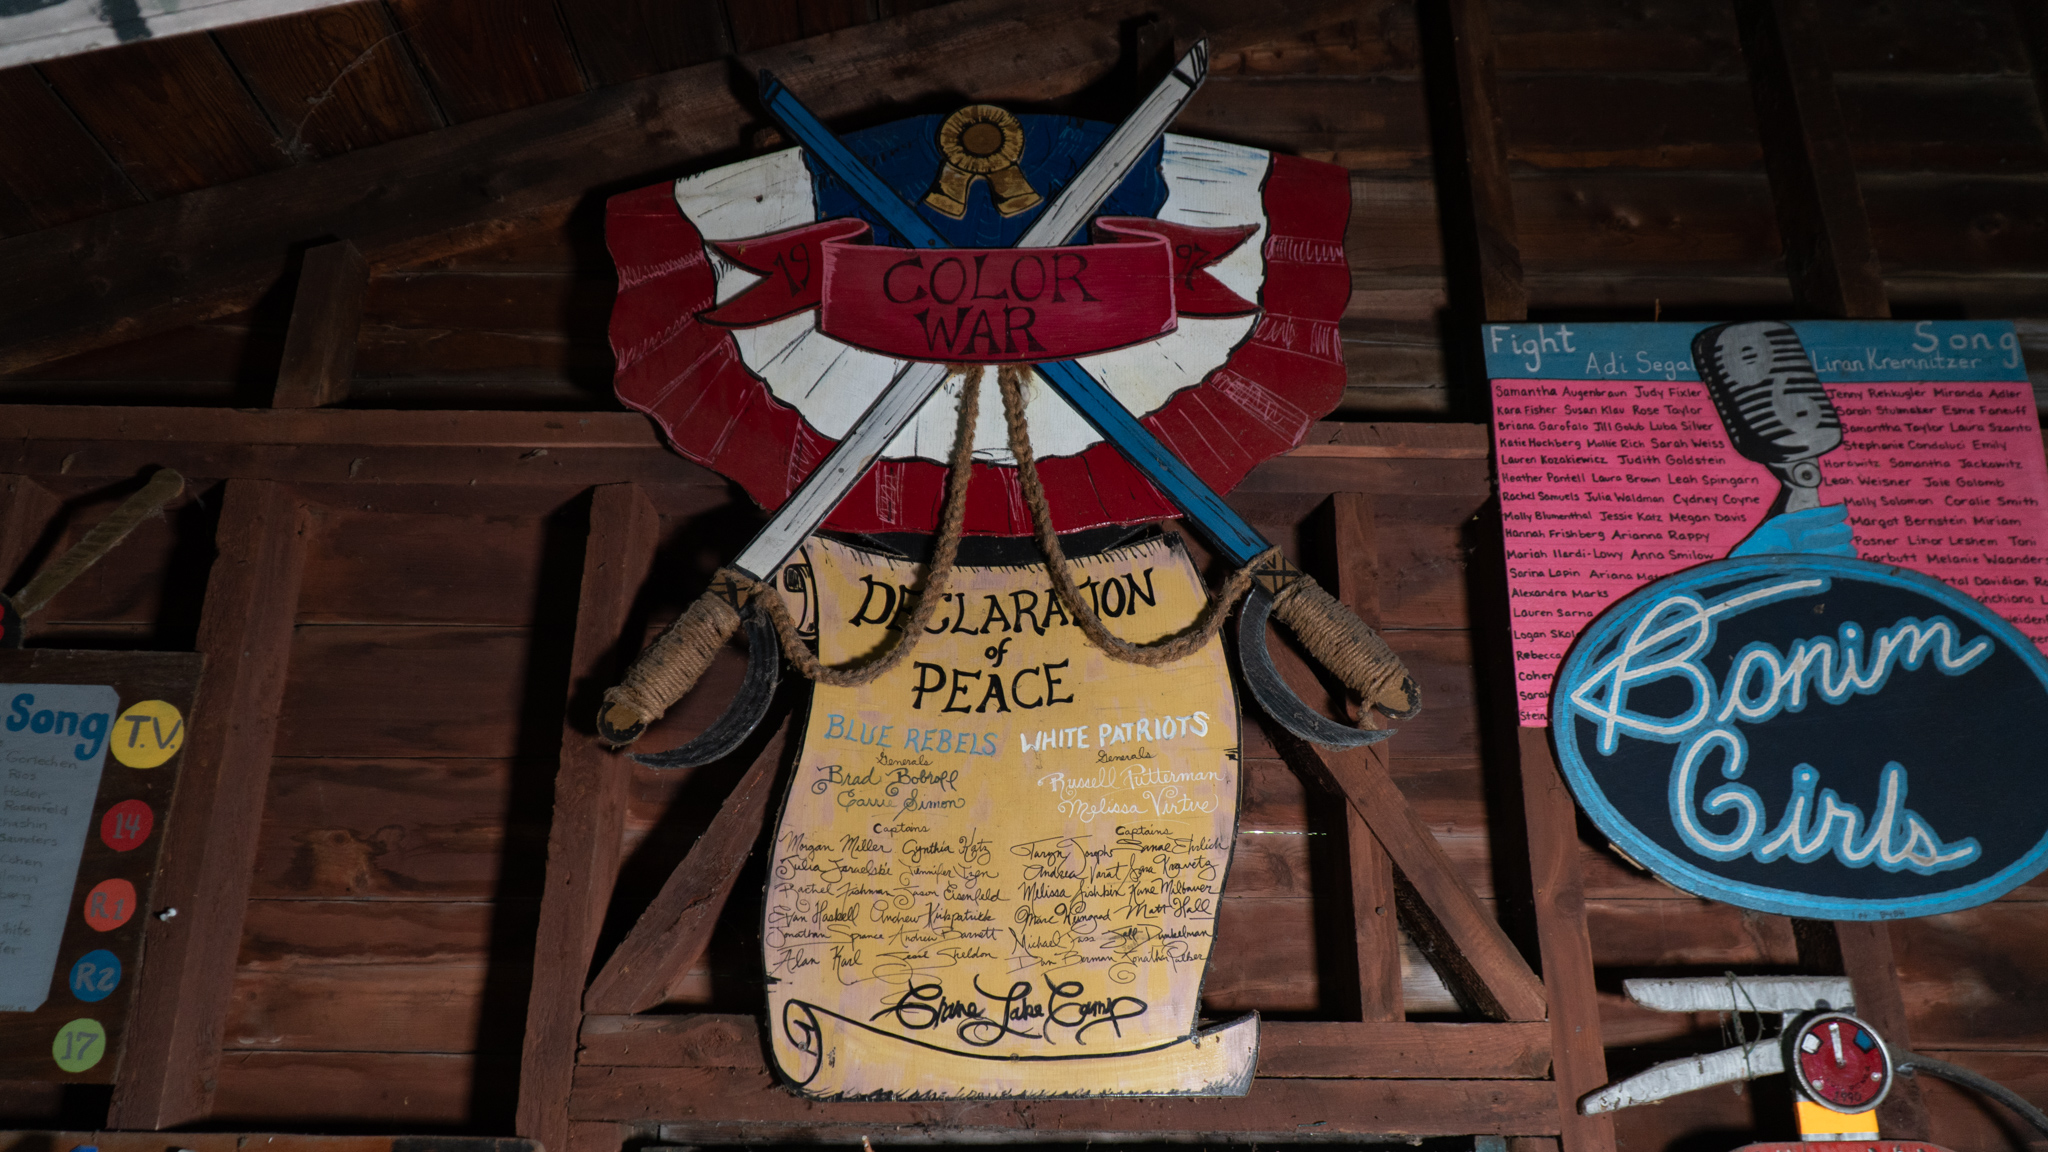 19 COLOR 97
WAR
DECLARATION
of
PEACE
BLUE REBELS
Generals
Brad Bobroff
Carrie Simon
Captains
Morgan Miller Cynthia Katz
Julia Jennifer
Rachel Fishman Jason Eisenfeld
Evan Haskell Andrew Kirkpatrick
Jonathan Andrew Barnett
Alan Karl Sheldon
WHITE PATRIOTS
Generals
Russell Putterman
Melissa Virtue
Captains
Taryn Joseph Ehrlich
Andrea Kravetz
Melissa
Marc Matt Hall
Michael Dunkelman
Dan Berman Jonathan
Crane Lake Camp
Song T.V.
14
R1
R2
17
Fight Song
Adi Segal Liran Kremnitzer
Samantha Augenbraun Judy Fixler
Kara Fisher Susan Klau Rose Taylor
Briana Garofalo Jill Golub Luba Silver
Katie Hochberg Mollie Rich Sarah Weiss
Lauren Kozakiewicz Judith Goldstein
Heather Pantell Laura Brown Leah Spingarn
Rachel Samuels Julia Waldman Cydney Coyne
Molly Blumenthal Jessie Katz Megan Davis
Hannah Frishberg Arianna Rappy
Mariah Ilardi-Lowy Anna Smilow
Sarina Lapin Ariana
Alexandra Marks
Lauren Sarna
Logan
Rebecca
Cohen
Jenny Rehkugler Miranda Adler
Sarah Stubmaker Esme
Samantha Taylor Laura Szanto
Stephanie Condoluci Emily
Horowitz Samantha Jackowitz
Leah Weisner Joie Golomb
Molly Solomon Coralie Smith
Margot Bernstein Miriam
Posner Linor Leshem Tani
Garbutt Melanie
Davidian
Bonim
Girls